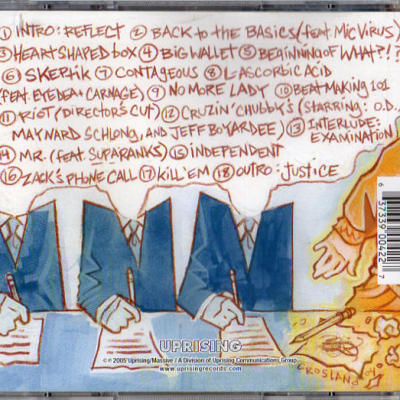 ① INTRO: REFLECT ② BACK to the BASICS (feat. Mic VIRUS)
③ HEART SHAPED box ④ BIG WALLET ⑤ BEGINNING OF WHAT?!?
⑥ SKEPTIK ⑦ CONTAGEOUS ⑧ L-ASCORBIC ACID
(FEAT. EYEDEA + CARNAGE) ⑨ NO MORE LADY ⑩ BEAT MAKING 101
⑪ RIOT (DIRECTOR'S CUT) ⑫ CRUZIN' CHUBBY'S (STARRING: O.D.,
MAYNARD SCHLONG, AND JEFF BOYARDEE) ⑬ INTERLUDE:
EXAMINATION
⑭ MR. (feat. SUPA'RANKS) ⑮ INDEPENDENT
⑯ ZACK'S PHONE CALL ⑰ KILL 'EM ⑱ OUTRO: JUSTICE
6 37339 00422 7
UPRISING
© ℗ 2005 Uprising/Massive / A Division of Uprising Communications Group.
www.uprisingrecords.com
CROSLAND